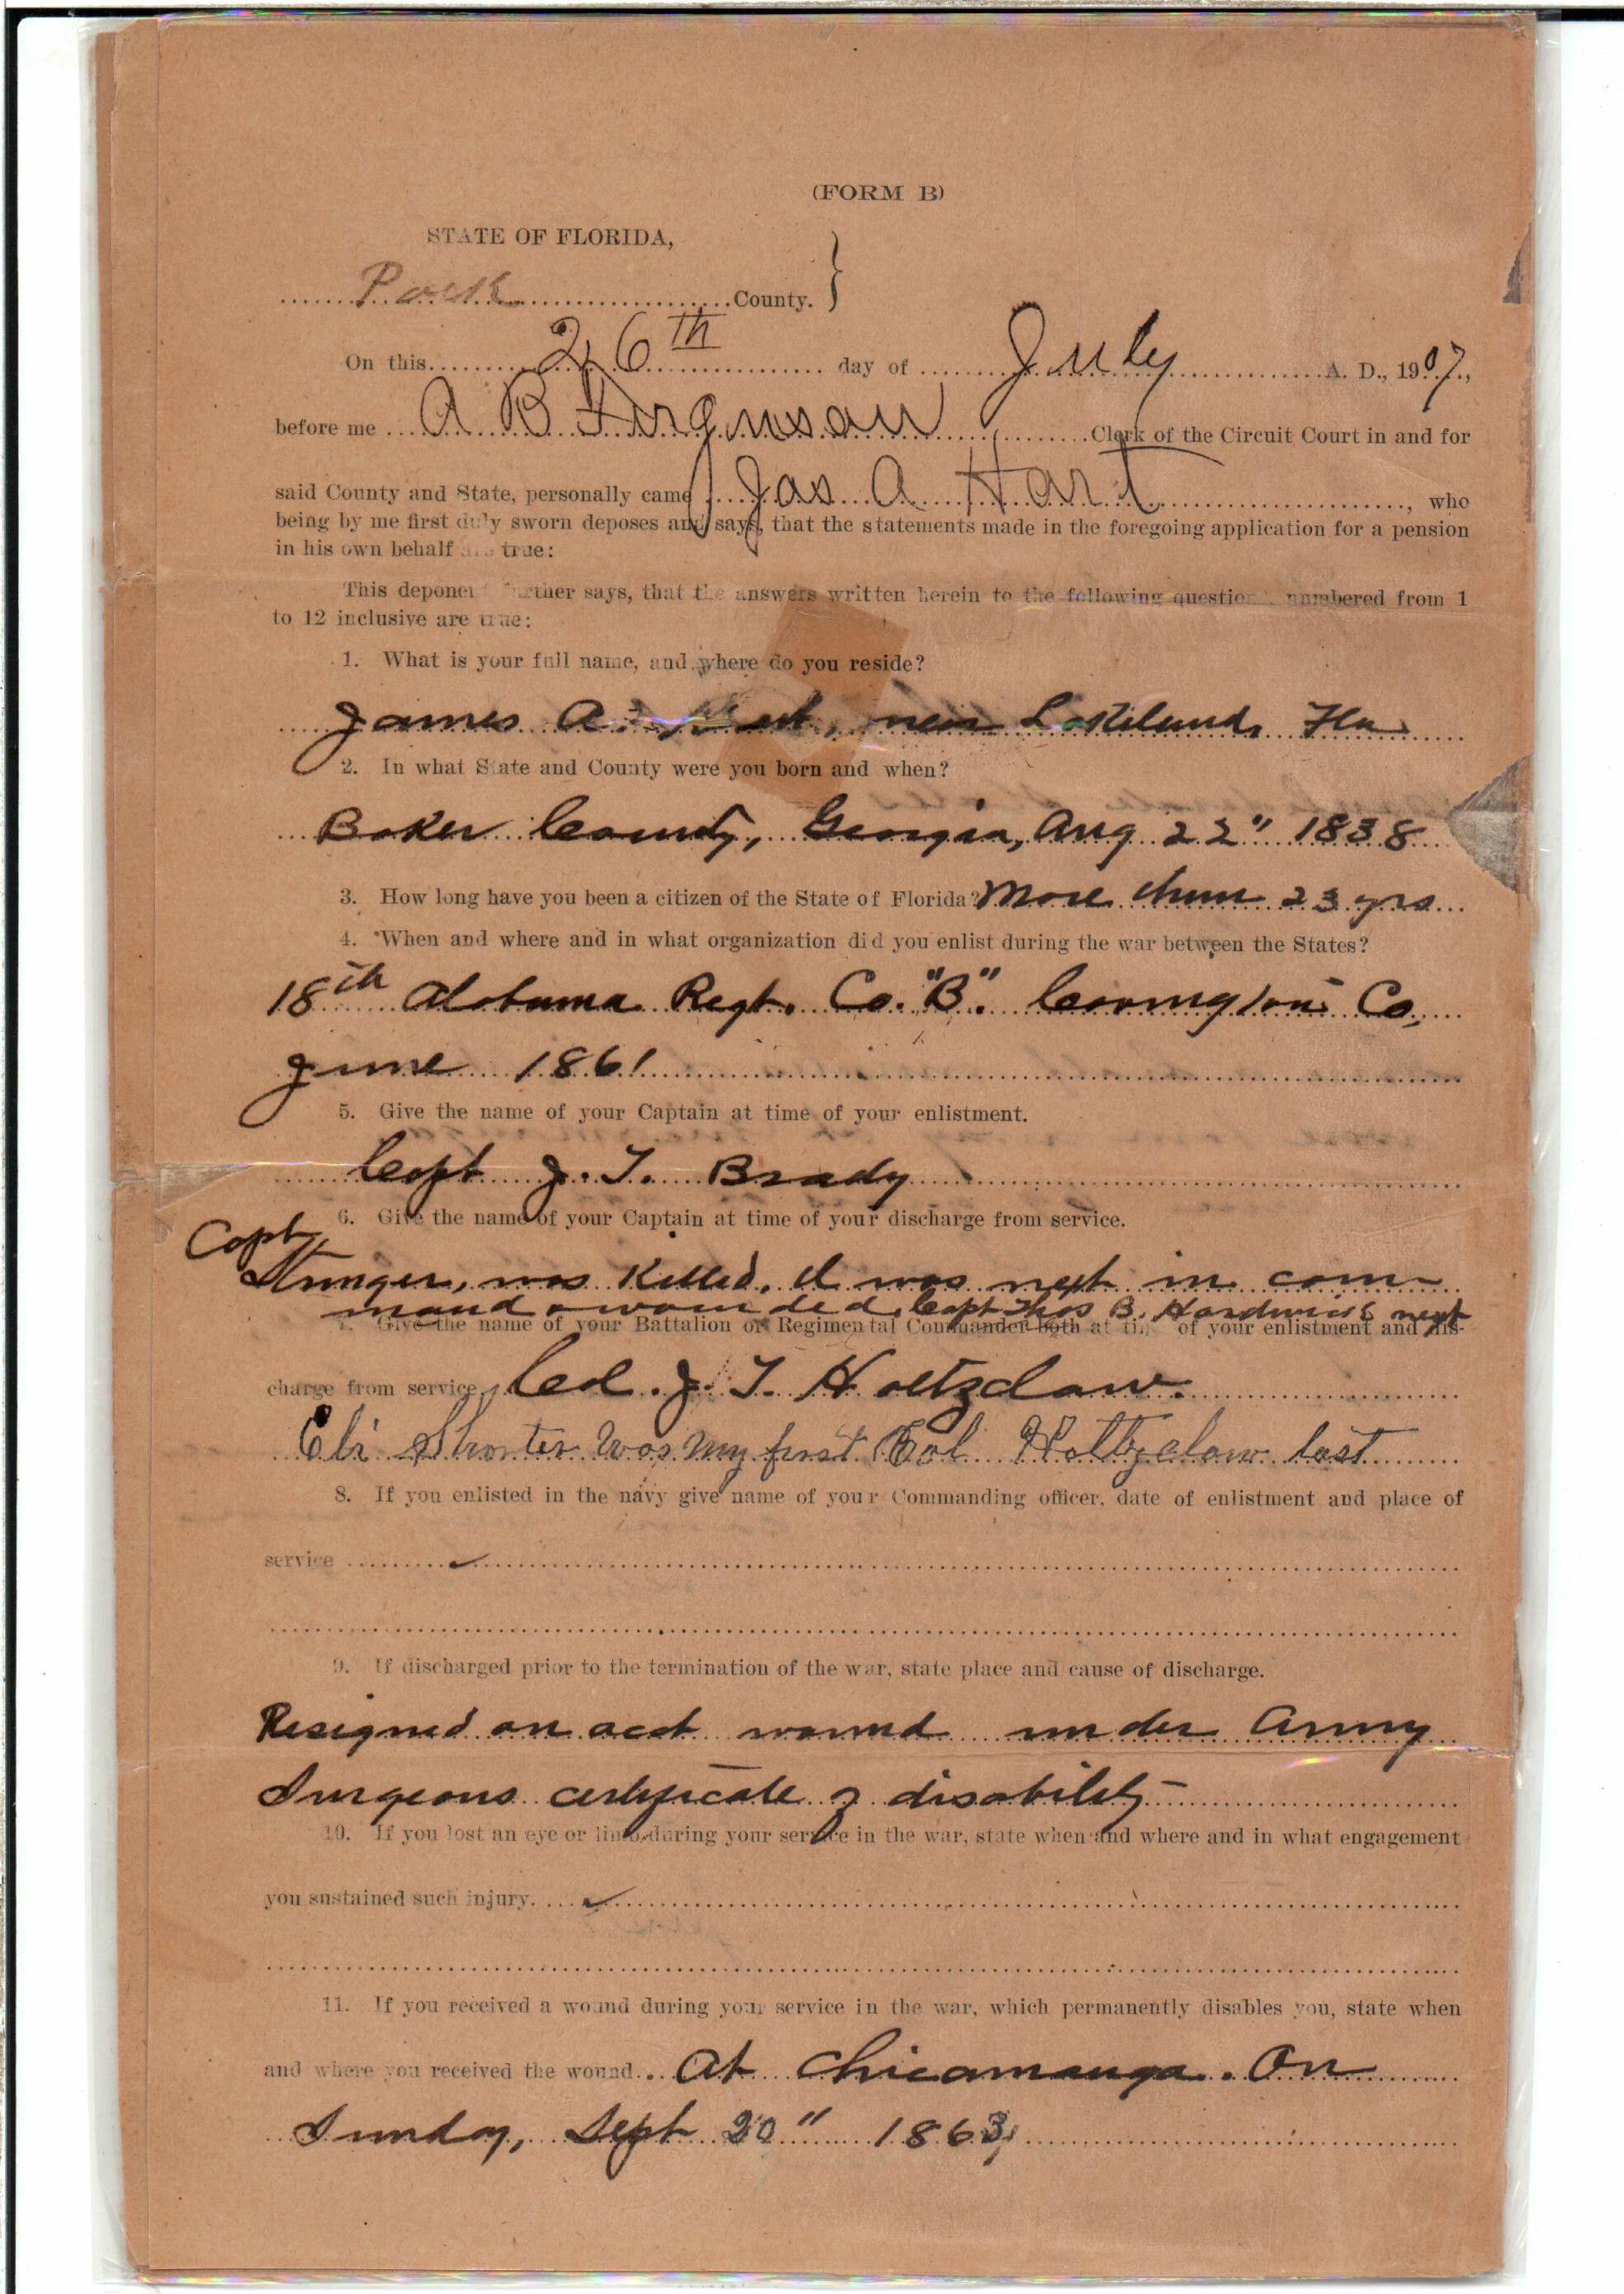 (FORM B)
STATE OF FLORIDA,
Polk County.
On this 26th day of July A. D., 1907,
before me A B Ferguson Clerk of the Circuit Court in and for
said County and State, personally came Jas A Hart, who
being by me first duly sworn deposes and says, that the statements made in the foregoing application for a pension
in his own behalf are true:
This deponent further says, that the answers written herein to the following questions numbered from 1
to 12 inclusive are true:
1. What is your full name, and where do you reside?
James A. Hart, near Lakeland, Fla
2. In what State and County were you born and when?
Baker County, Georgia, Aug 22" 1838
3. How long have you been a citizen of the State of Florida? More than 23 yrs
4. When and where and in what organization did you enlist during the war between the States?
18th Alabama Regt. Co. "B". Covington Co,
June 1861
5. Give the name of your Captain at time of your enlistment.
Capt J. T. Brady
6. Give the name of your Captain at time of your discharge from service.
Capt
was Killed. I was next in com
mand & wounded, Capt Thos B. Hardwick next
7. Give the name of your Battalion or Regimental Commander both at time of your enlistment and dis-
charge from service, Col. J. T. Holtzclaw.
Eli Shorter was my first Col Holtzclaw last
8. If you enlisted in the navy give name of your Commanding officer, date of enlistment and place of
service
9. If discharged prior to the termination of the war, state place and cause of discharge.
Resigned on acct wound under Army
Surgeons certificate of disability
10. If you lost an eye or limb during your service in the war, state when and where and in what engagement
you sustained such injury.
11. If you received a wound during your service in the war, which permanently disables you, state when
and where you received the wound. At Chicamauga. On
Sunday, Sept 20" 1863,